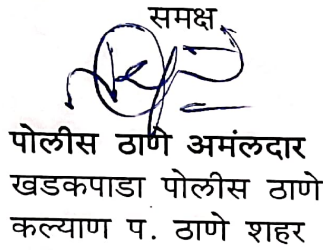 समक्ष
पोलीस ठाणे अमंलदार
खडकपाडा पोलीस ठाणे
कल्याण प. ठाणे शहर